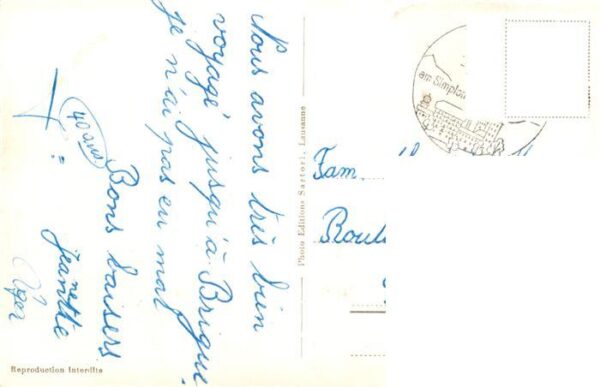 Nous avons très bien
voyagé jusqu'à Brigue.
je n'ai pas eu mal
Bons baisers
Jeanette
40 ans
Fam.
am Simplon
Photo Editions Sartori, Lausanne
Reproduction Interdite